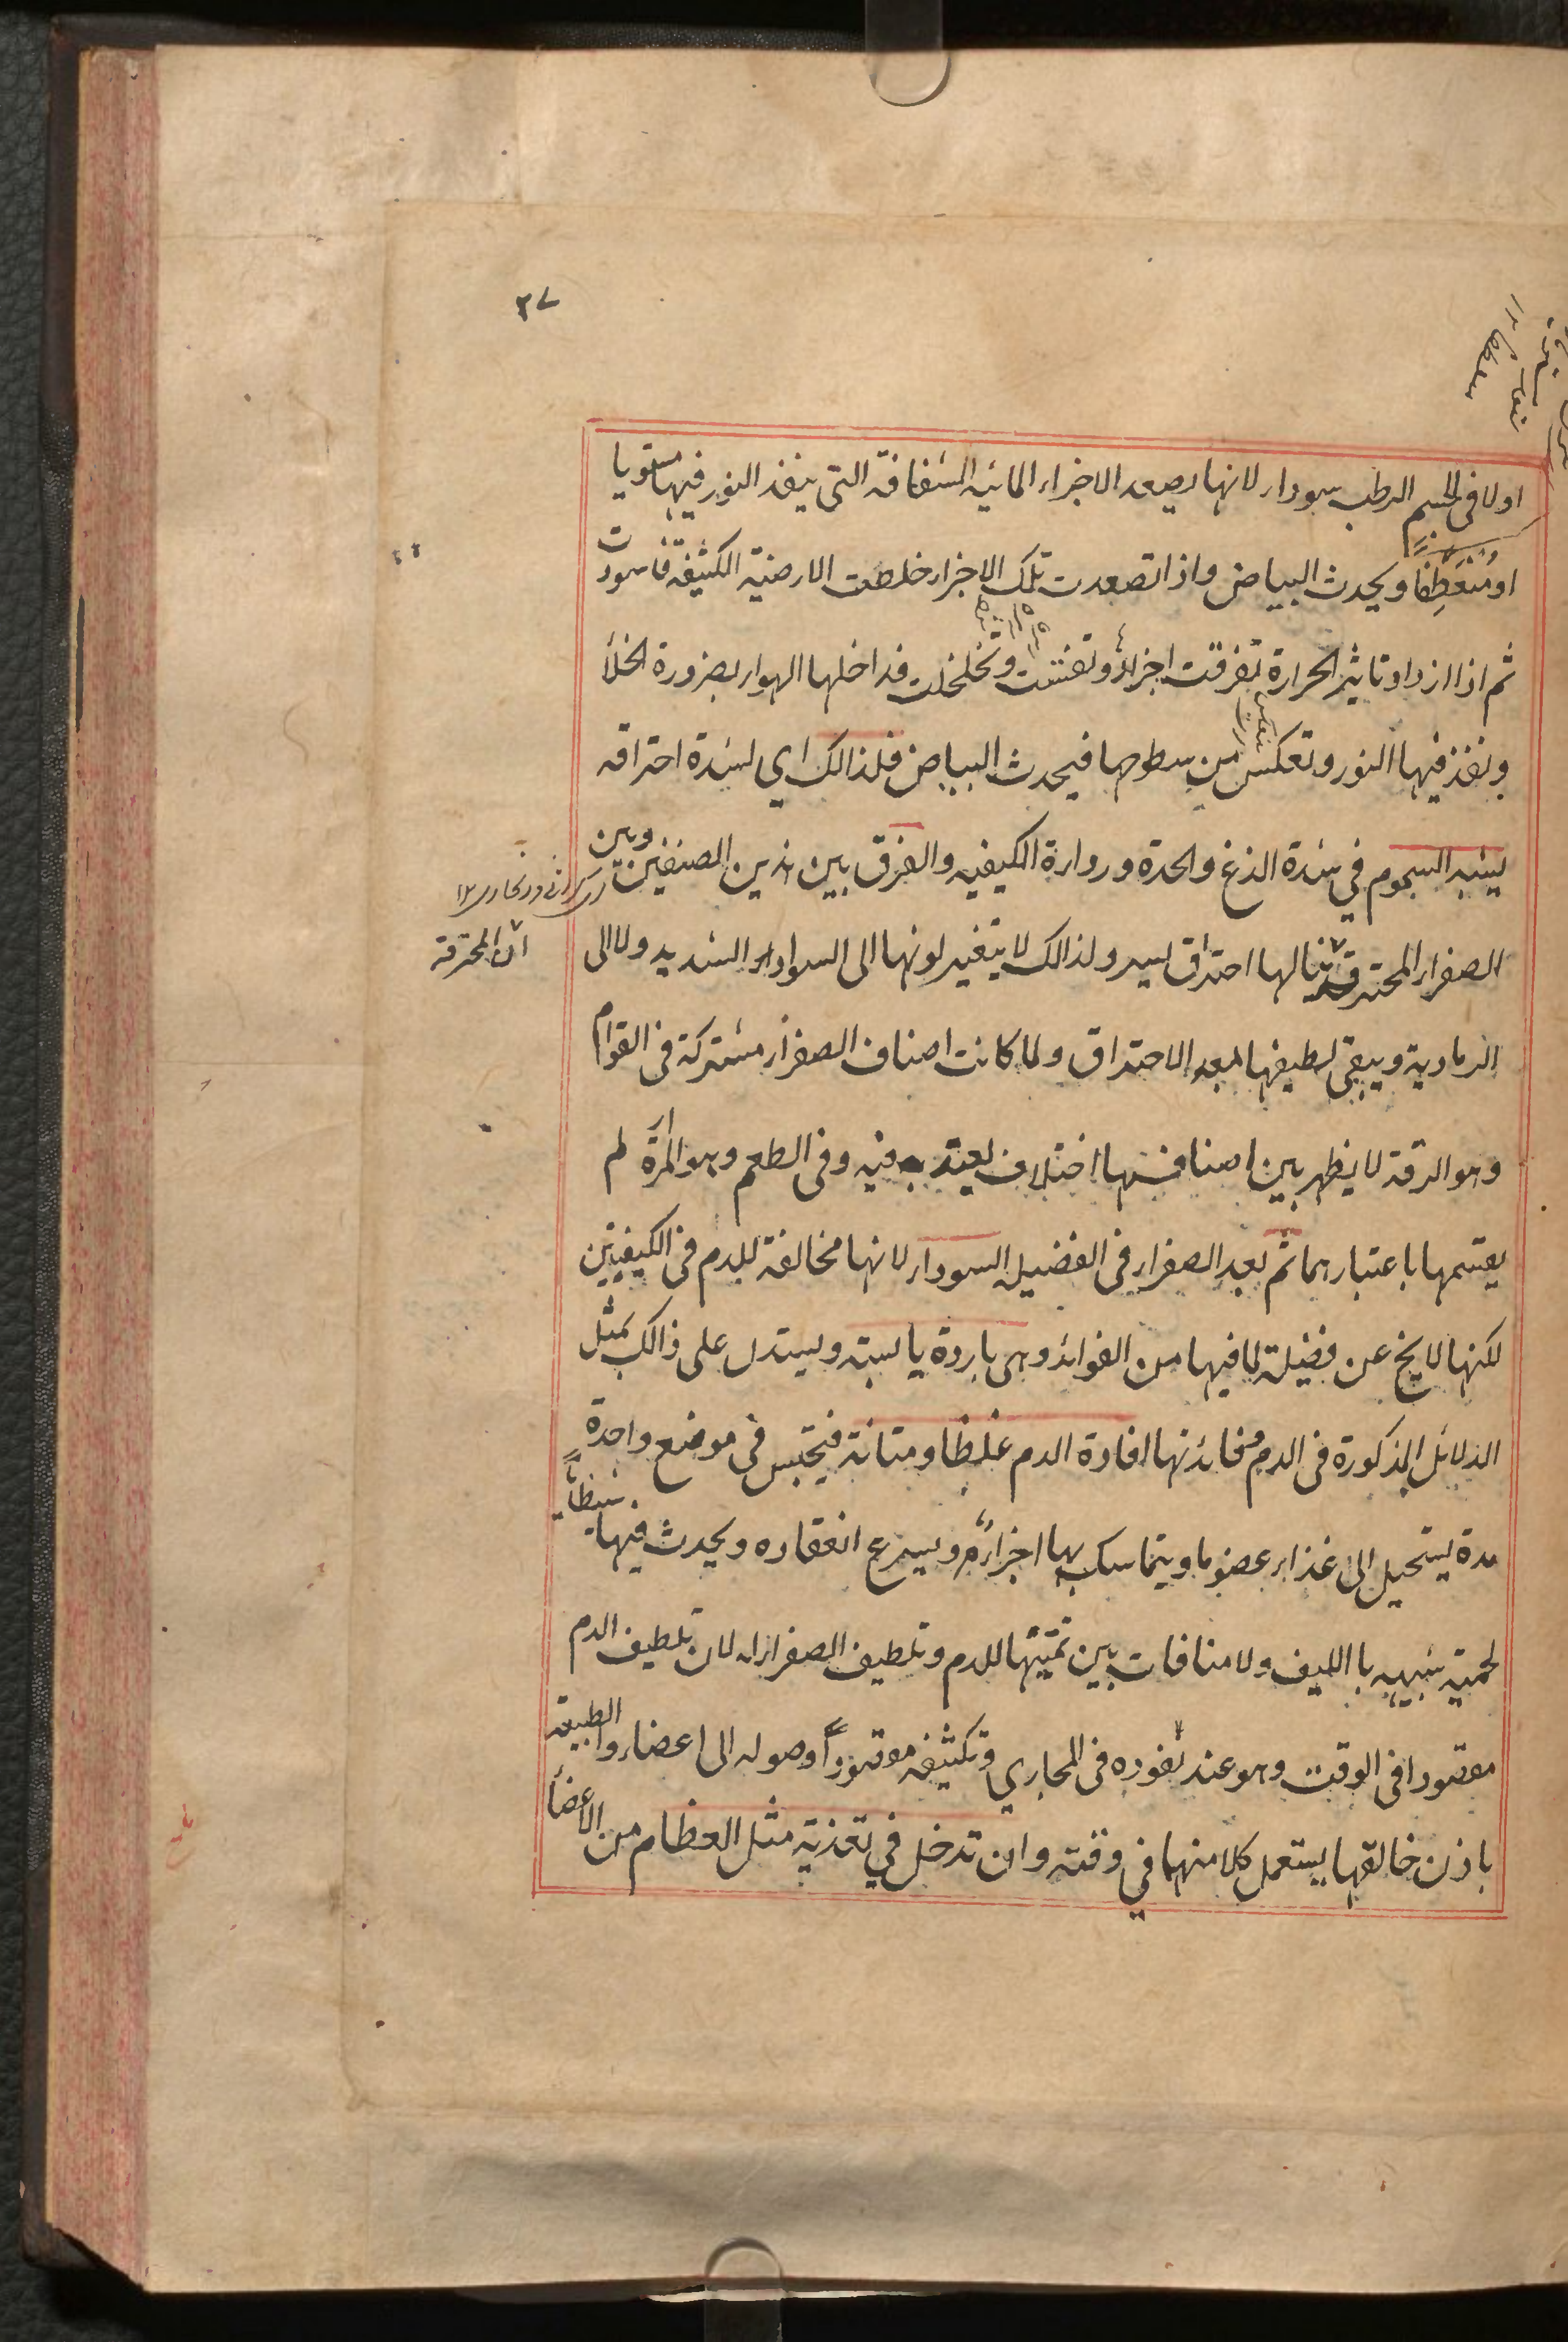 ٢٧
اولا فى الجسم الرطب سوداء لانها يصعد الاجزاء المائيه الشفافة التى ينفذ النور فيها مستويا
او منعَطِفًا ويحدث البياض واذا تصعدت تلك الاجزاء خلطت الارضية الكثيفة فاسودت
ثم اذا ازداد تاثير الحرارة تفرقت اجزاؤه وتفتتت وتخلخلت فداخلها الهواء بضرورة الخلأ
ونفذ فيها النور وتعكس من سطوحها فيحدث البياض فلذالك اي لشدة احتراقه
يشبه السموم في شدة اللذغ والحدة وروارة الكيفيه والفرق بين هذين الصنفين وبين
ان المحترقة
الصفراء المحترقة ينالها احتراق يسير ولذالك لا يتغير لونها الى السواد الشديد ولا الى
الرمادية ويبقى لطيفها بعد الاحتراق ولما كانت اصناف الصفراء مشتركة فى القوام
وهو الرقة لا يظهر بين اصنافها اختلاف يعتد به فيه وفى الطعم وهو المرارة لم
يقسمها باعتبارهما ثم بعد الصفراء فى الفضيلة السوداء لانها مخالفة للدم فى الكيفيتين
لكنها لا يخ عن فضيلة لما فيها من الفوائد وهى باردة يابسة ويستدل على ذالك بمثل
الدلائل المذكورة فى الدم فائدتها افادة الدم غلظا ومتانة فيحتبس فى موضع واحدة
مدة يستحيل الى غذاء عضو ما ويتماسك بها اجزاؤه ويسرع انعقاده ويحدث فيها شظايا
لحمية شبيهه باالليف ولا منافات بين تمتينها للدم وتلطيف الصفراء له لان تلطيف الدم
مقصودا فى الوقت وهو عند نفوذه فى المجاري وتكثيفه مقصودا وصوله الى اعضاء والطبيعة
باذن خالقها يستعمل كلا منهما في وقته وان تدخل في تغذية مثل العظام من الاعضأ